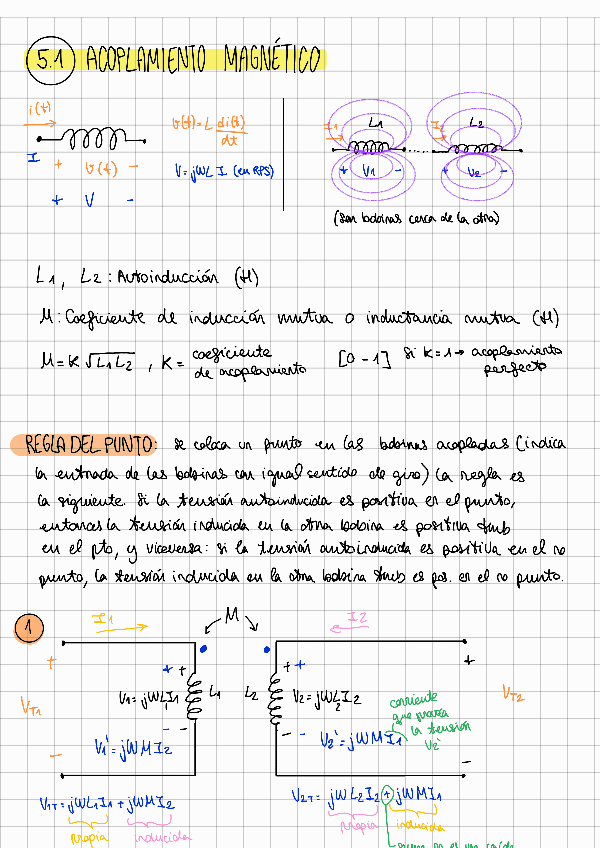 5.1 ACOPLAMIENTO MAGNÉTICO
i(t)
I
+ v(t) -
+ V -
v(t) = L di(t)/dt
V = jWL I (en RPS)
I1 L1 I2 L2
+ V1 - + V2 -
(Son bobinas cerca de la otra)
L1, L2: Autoinducción (H)
M: Coeficiente de inducción mutua o inductancia mutua (H)
M = K √L1L2 , K = coeficiente de acoplamiento [0 - 1] Si K = 1 → acoplamiento perfecto
REGLA DEL PUNTO: se coloca un punto en las bobinas acopladas (indica
la entrada de las bobinas con igual sentido de giro) La regla es
la siguiente. Si la tensión autoinducida es positiva en el punto,
entonces la tensión inducida en la otra bobina es positiva tmb
en el pto, y viceversa: si la tensión autoinducida es positiva en el no
punto, la tensión inducida en la otra bobina tmb es pos. en el no punto.
1 I1 M I2
+ + + + + +
VT1 V1 = jWL1I1 L1 L2 V2 = jWL2I2 VT2
corriente
que provoca
la tensión
V2'
- V1' = jWMI2 - - - - V2' = jWMI1 -
V1T = jWL1I1 + jWMI2 V2T = jWL2I2 + jWMI1
propia inducida propia inducida